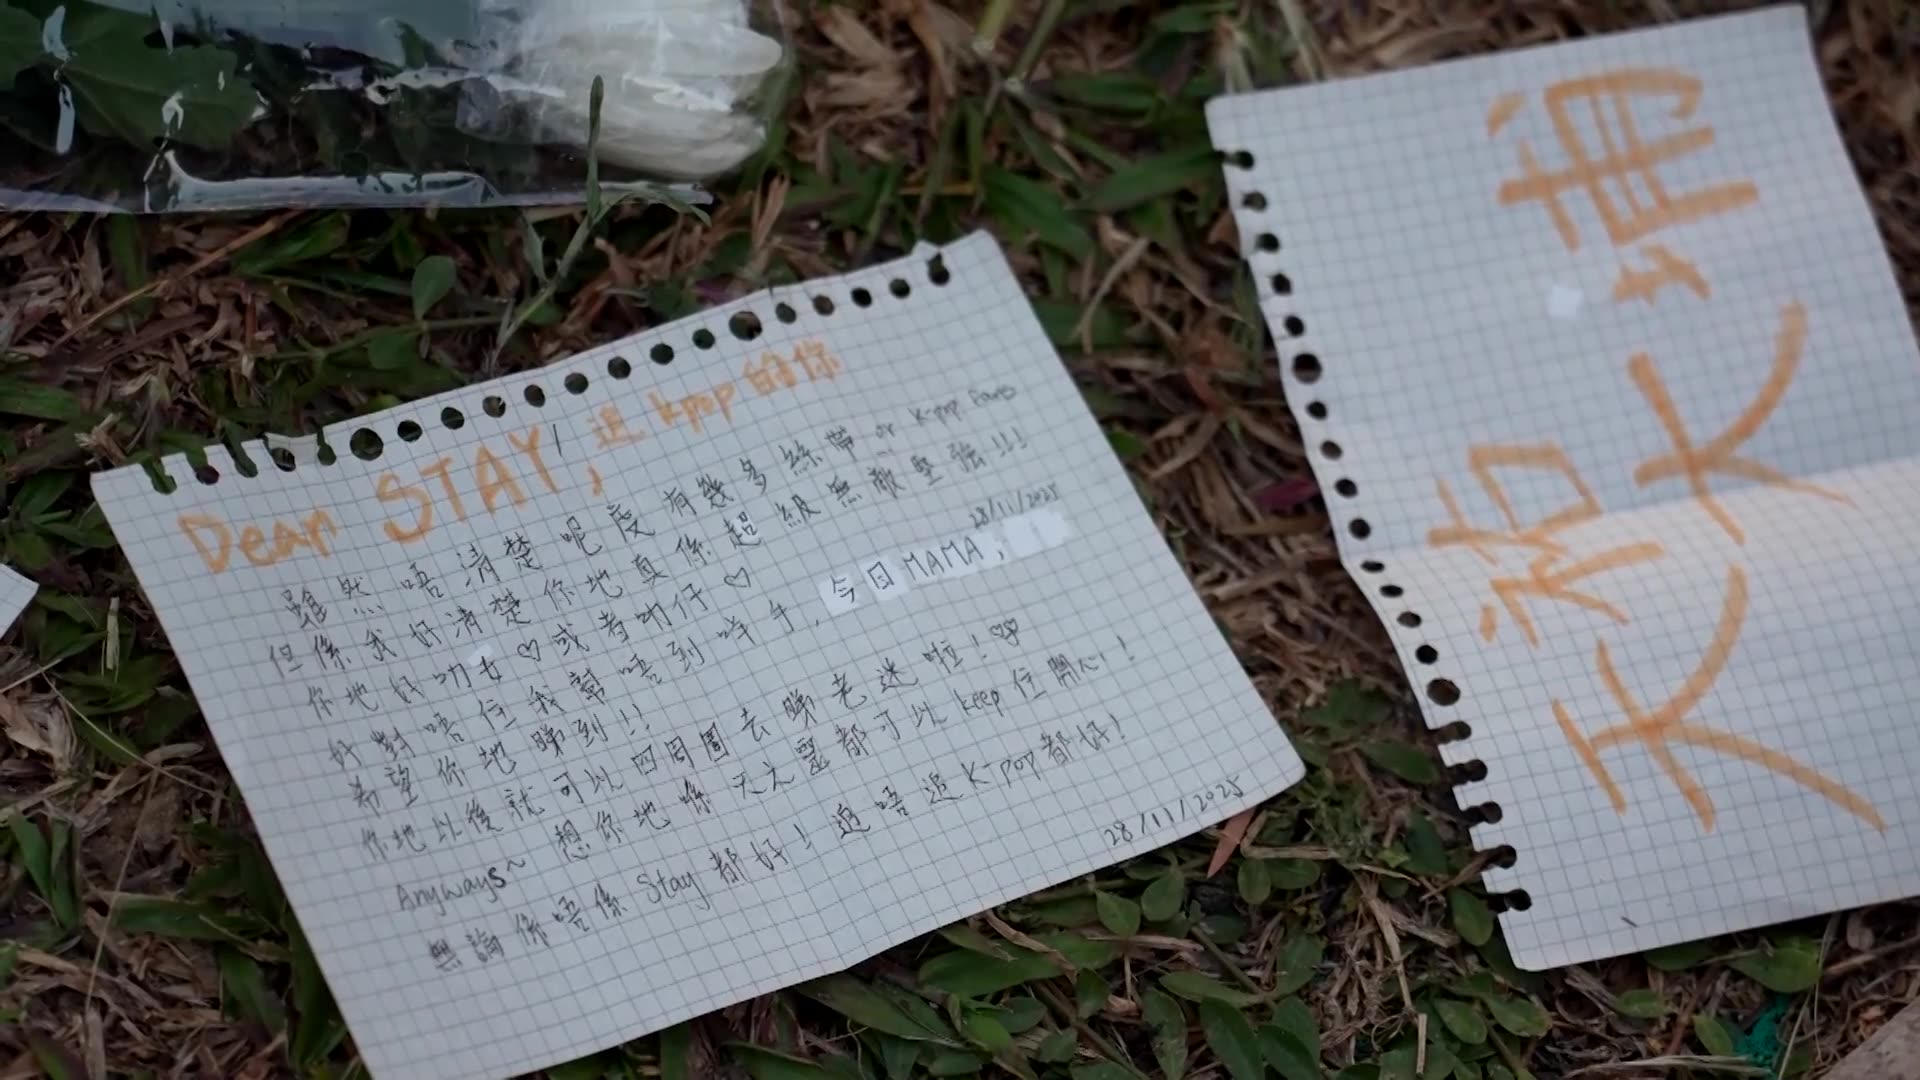 Dear STAY, 追 kpop 的你
雖然唔清楚呢度有幾多絲帶 or K-pop Fans
但係我好清楚你地真係超級無敵堅強!!!
你地好叻女♡或者叻仔♡
28/11/2025
好對唔住我幫唔到咩手, 今日MAMA,
希望你地睇到!!
你地以後就可以四周圍去睇老迷啦!♡♡
Anyways~ 想你地喺天上面都可以 keep 住開心!
無論你唔係 Stay 都好! 追唔追 K-pop 都好!
28/11/2025
天